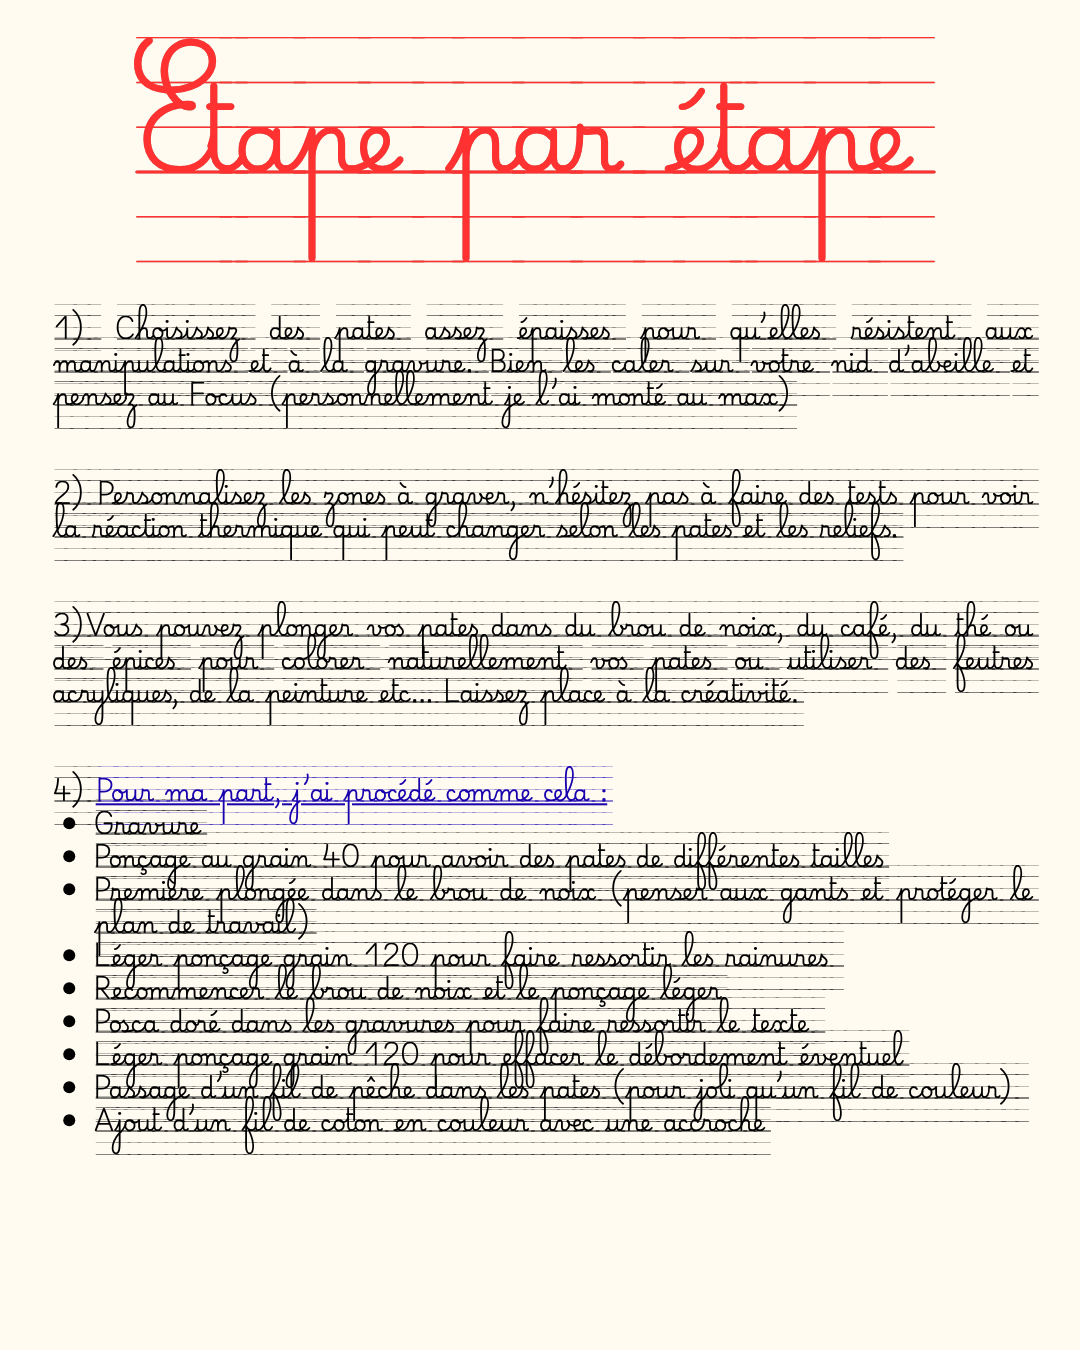 Etape par étape
1) Choisissez des pates assez épaisses pour qu'elles résistent aux
manipulations et à la gravure. Bien les caler sur votre nid d'abeille et
pensez au Focus (personnellement je l'ai monté au max)
2) Personnalisez les zones à graver, n'hésitez pas à faire des tests pour voir
la réaction thermique qui peut changer selon les pates et les reliefs.
3)Vous pouvez plonger vos pates dans du brou de noix, du café, du thé ou
des épices pour colorer naturellement vos pates ou utiliser des feutres
acryliques, de la peinture etc... Laissez place à la créativité.
4) Pour ma part, j'ai procédé comme cela :
• Gravure
• Ponçage au grain 40 pour avoir des pates de différentes tailles
• Première plongée dans le brou de noix (penser aux gants et protéger le
plan de travail)
• Léger ponçage grain 120 pour faire ressortir les rainures
• Recommencer le brou de noix et le ponçage léger
• Posca doré dans les gravures pour faire ressortir le texte
• Léger ponçage grain 120 pour effacer le débordement éventuel
• Passage d'un fil de pêche dans les pates (pour joli qu'un fil de couleur)
• Ajout d'un fil de coton en couleur avec une accroche